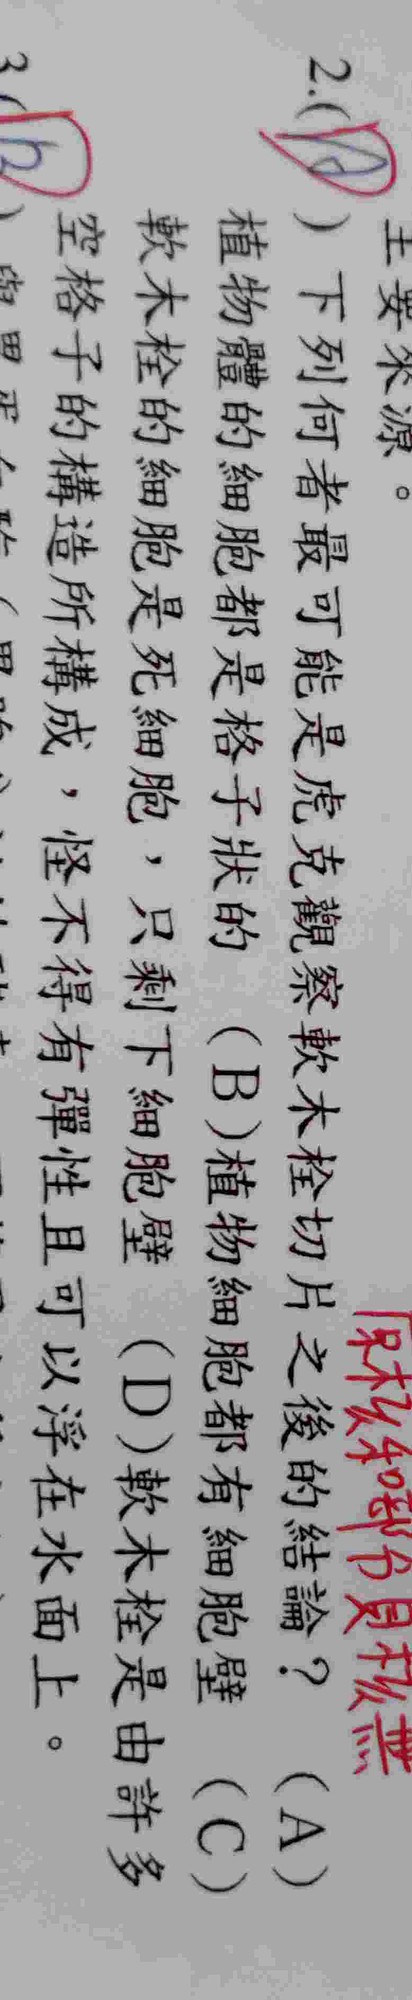 主要來源。
原核和部分真核無
2.(D)下列何者最可能是虎克觀察軟木栓切片之後的結論? (A)
植物體的細胞都是格子狀的 (B)植物細胞都有細胞壁 (C)
軟木栓的細胞是死細胞,只剩下細胞壁 (D)軟木栓是由許多
空格子的構造所構成,怪不得有彈性且可以浮在水面上。
3.(B)